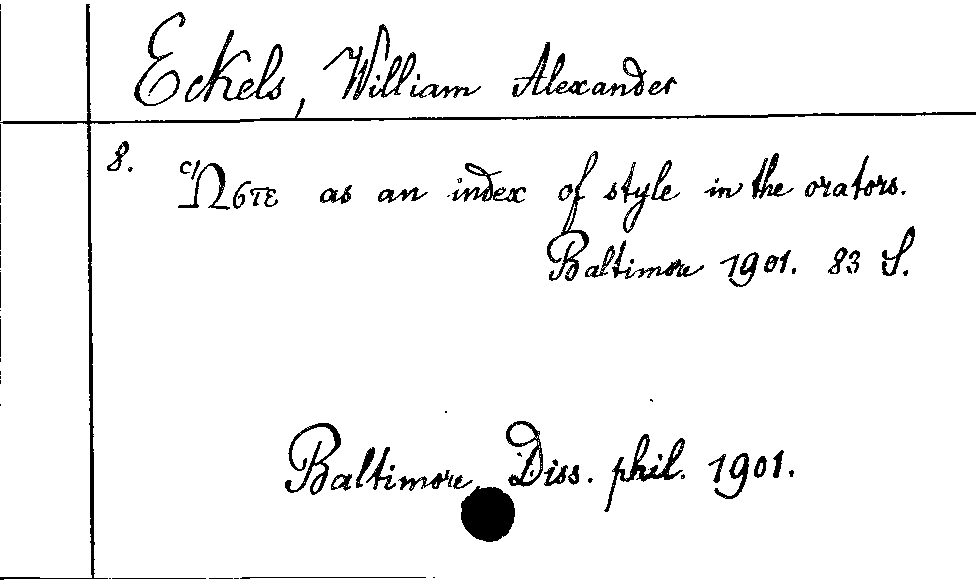 Eckels, William Alexander
8.
Ὥστε as an index of style in the orators.
Baltimore 1901. 83 S.
Baltimore, Diss. phil. 1901.